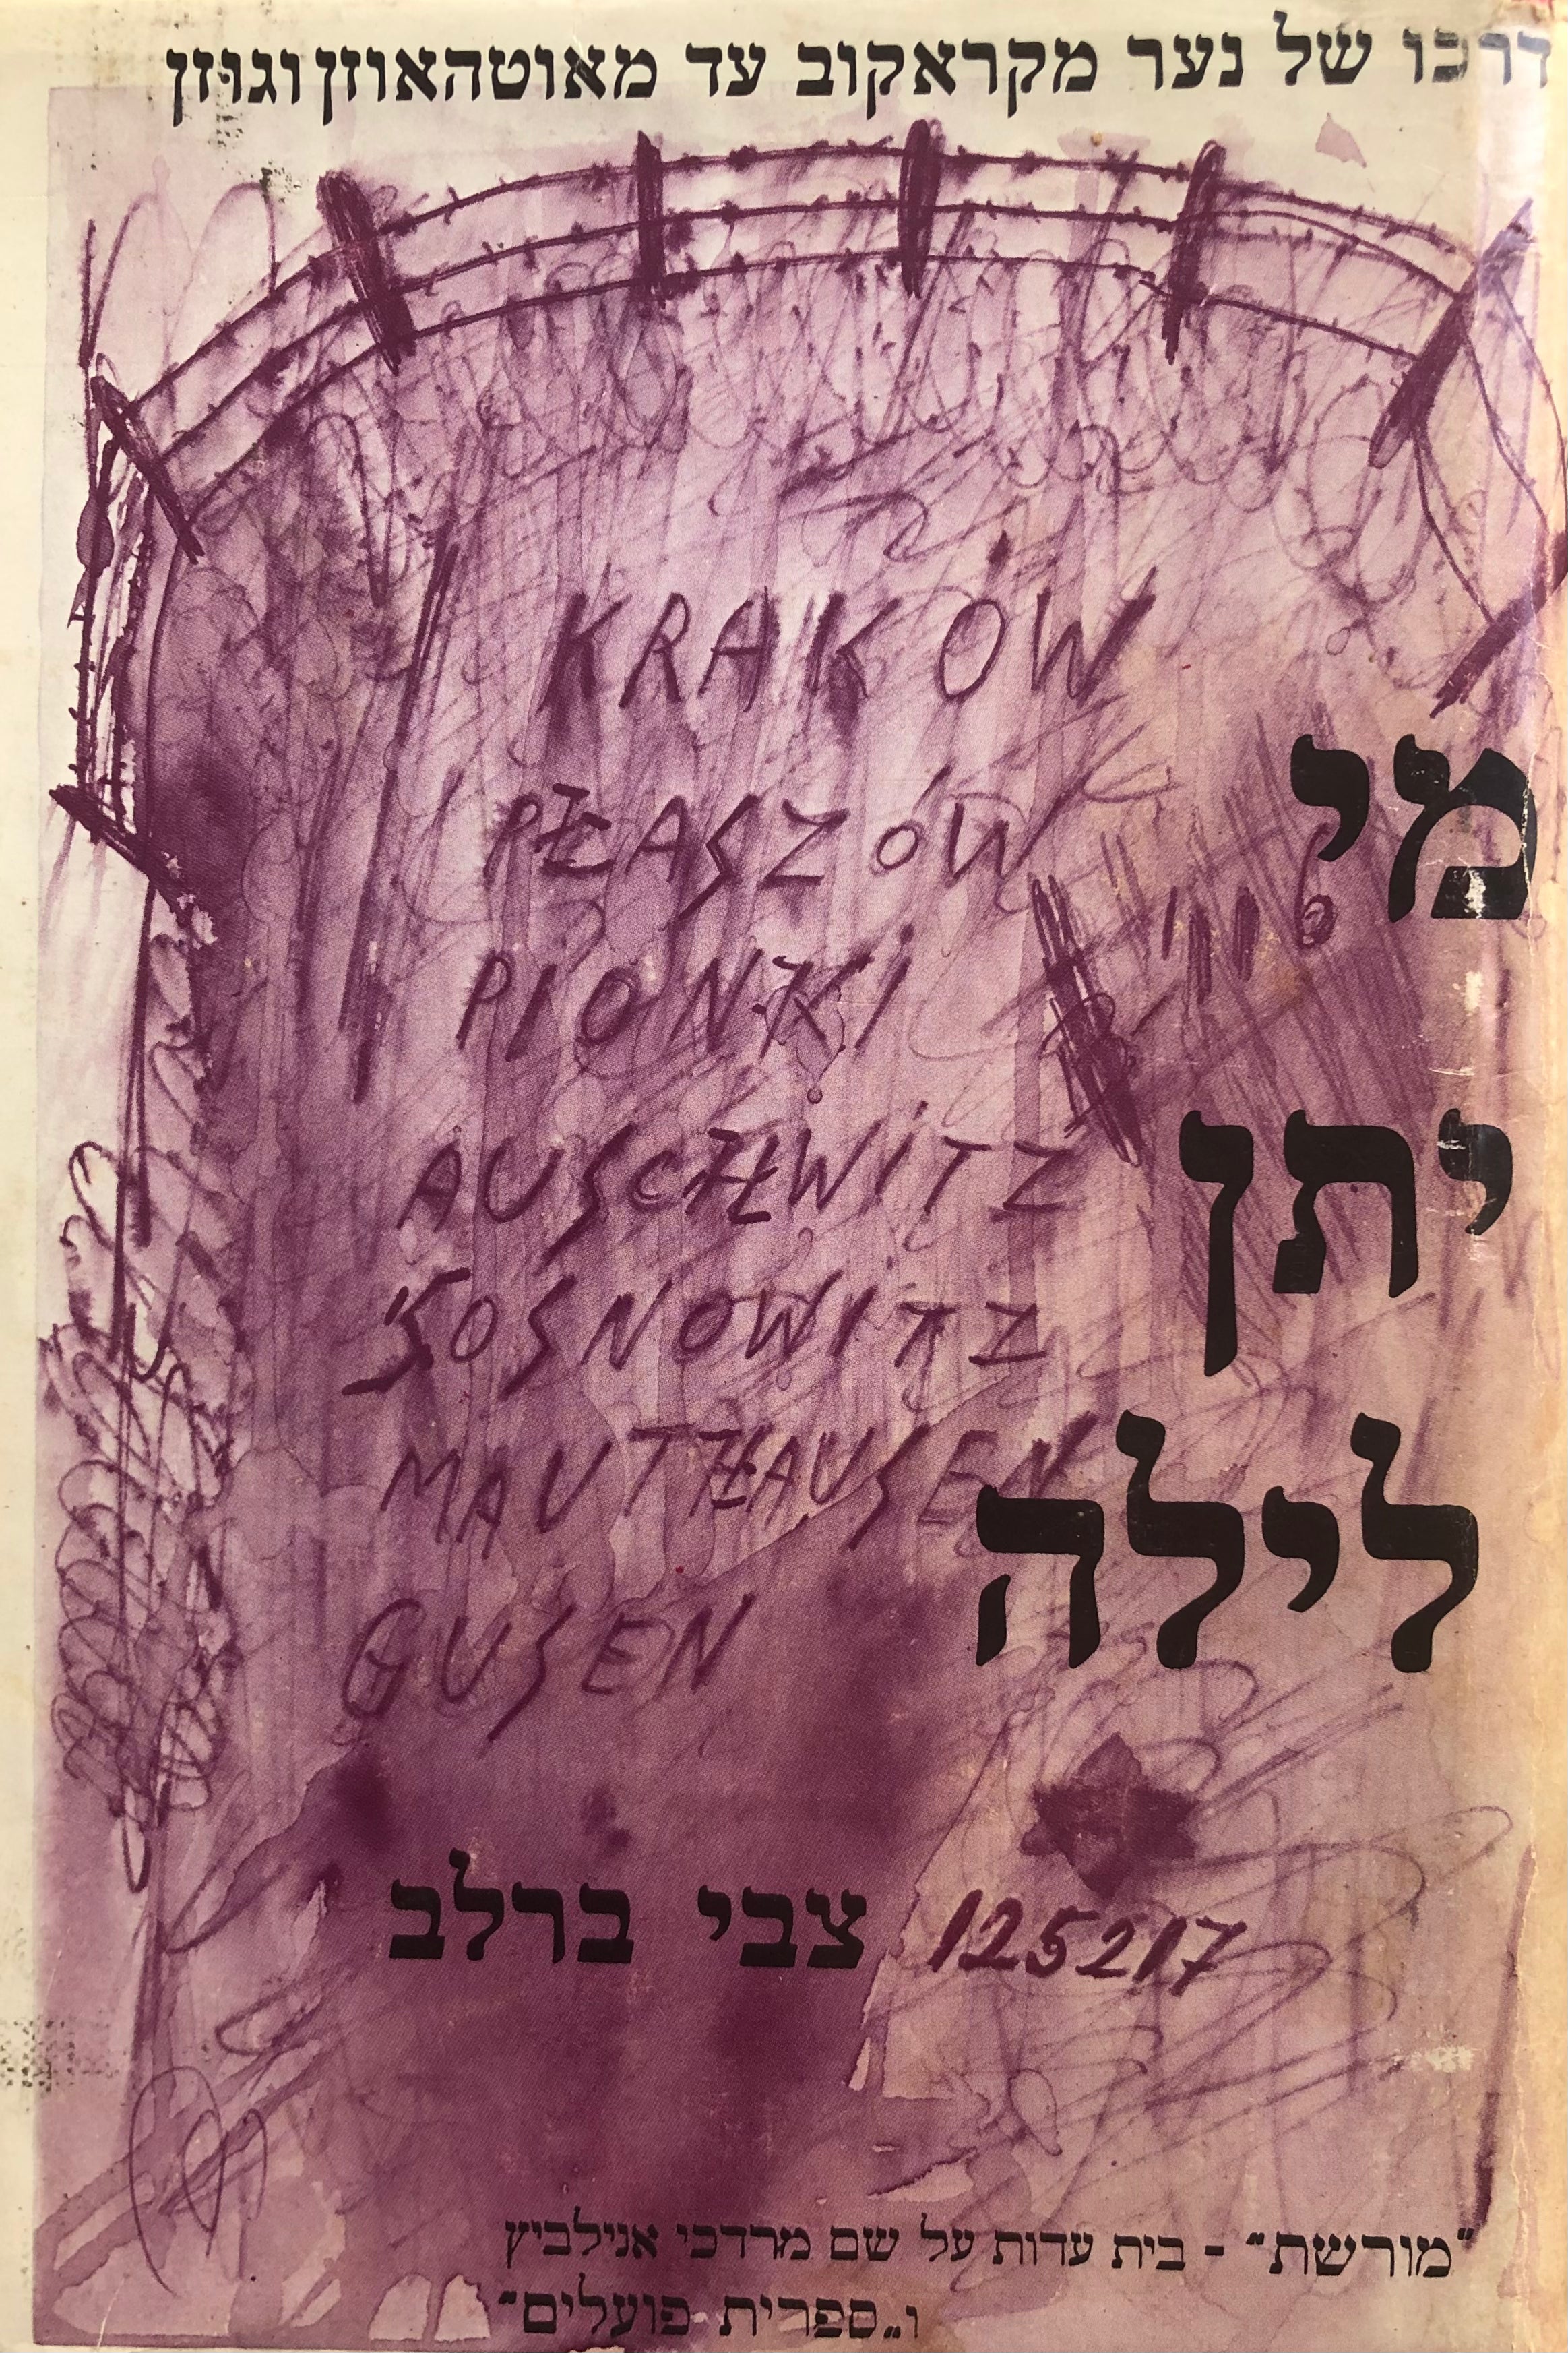 דרכו של נער מקראקוב עד מאוטהאוזן וגוזן
KRAKÓW
PŁASZÓW
PIONKI
AUSCHWITZ
SOSNOWITZ
MAUTHAUSEN
GUSEN
מי
יתן
לילה
125217
צבי ברלב
"מורשת" - בית עדות על שם מרדכי אנילביץ
ו"ספרית פועלים"